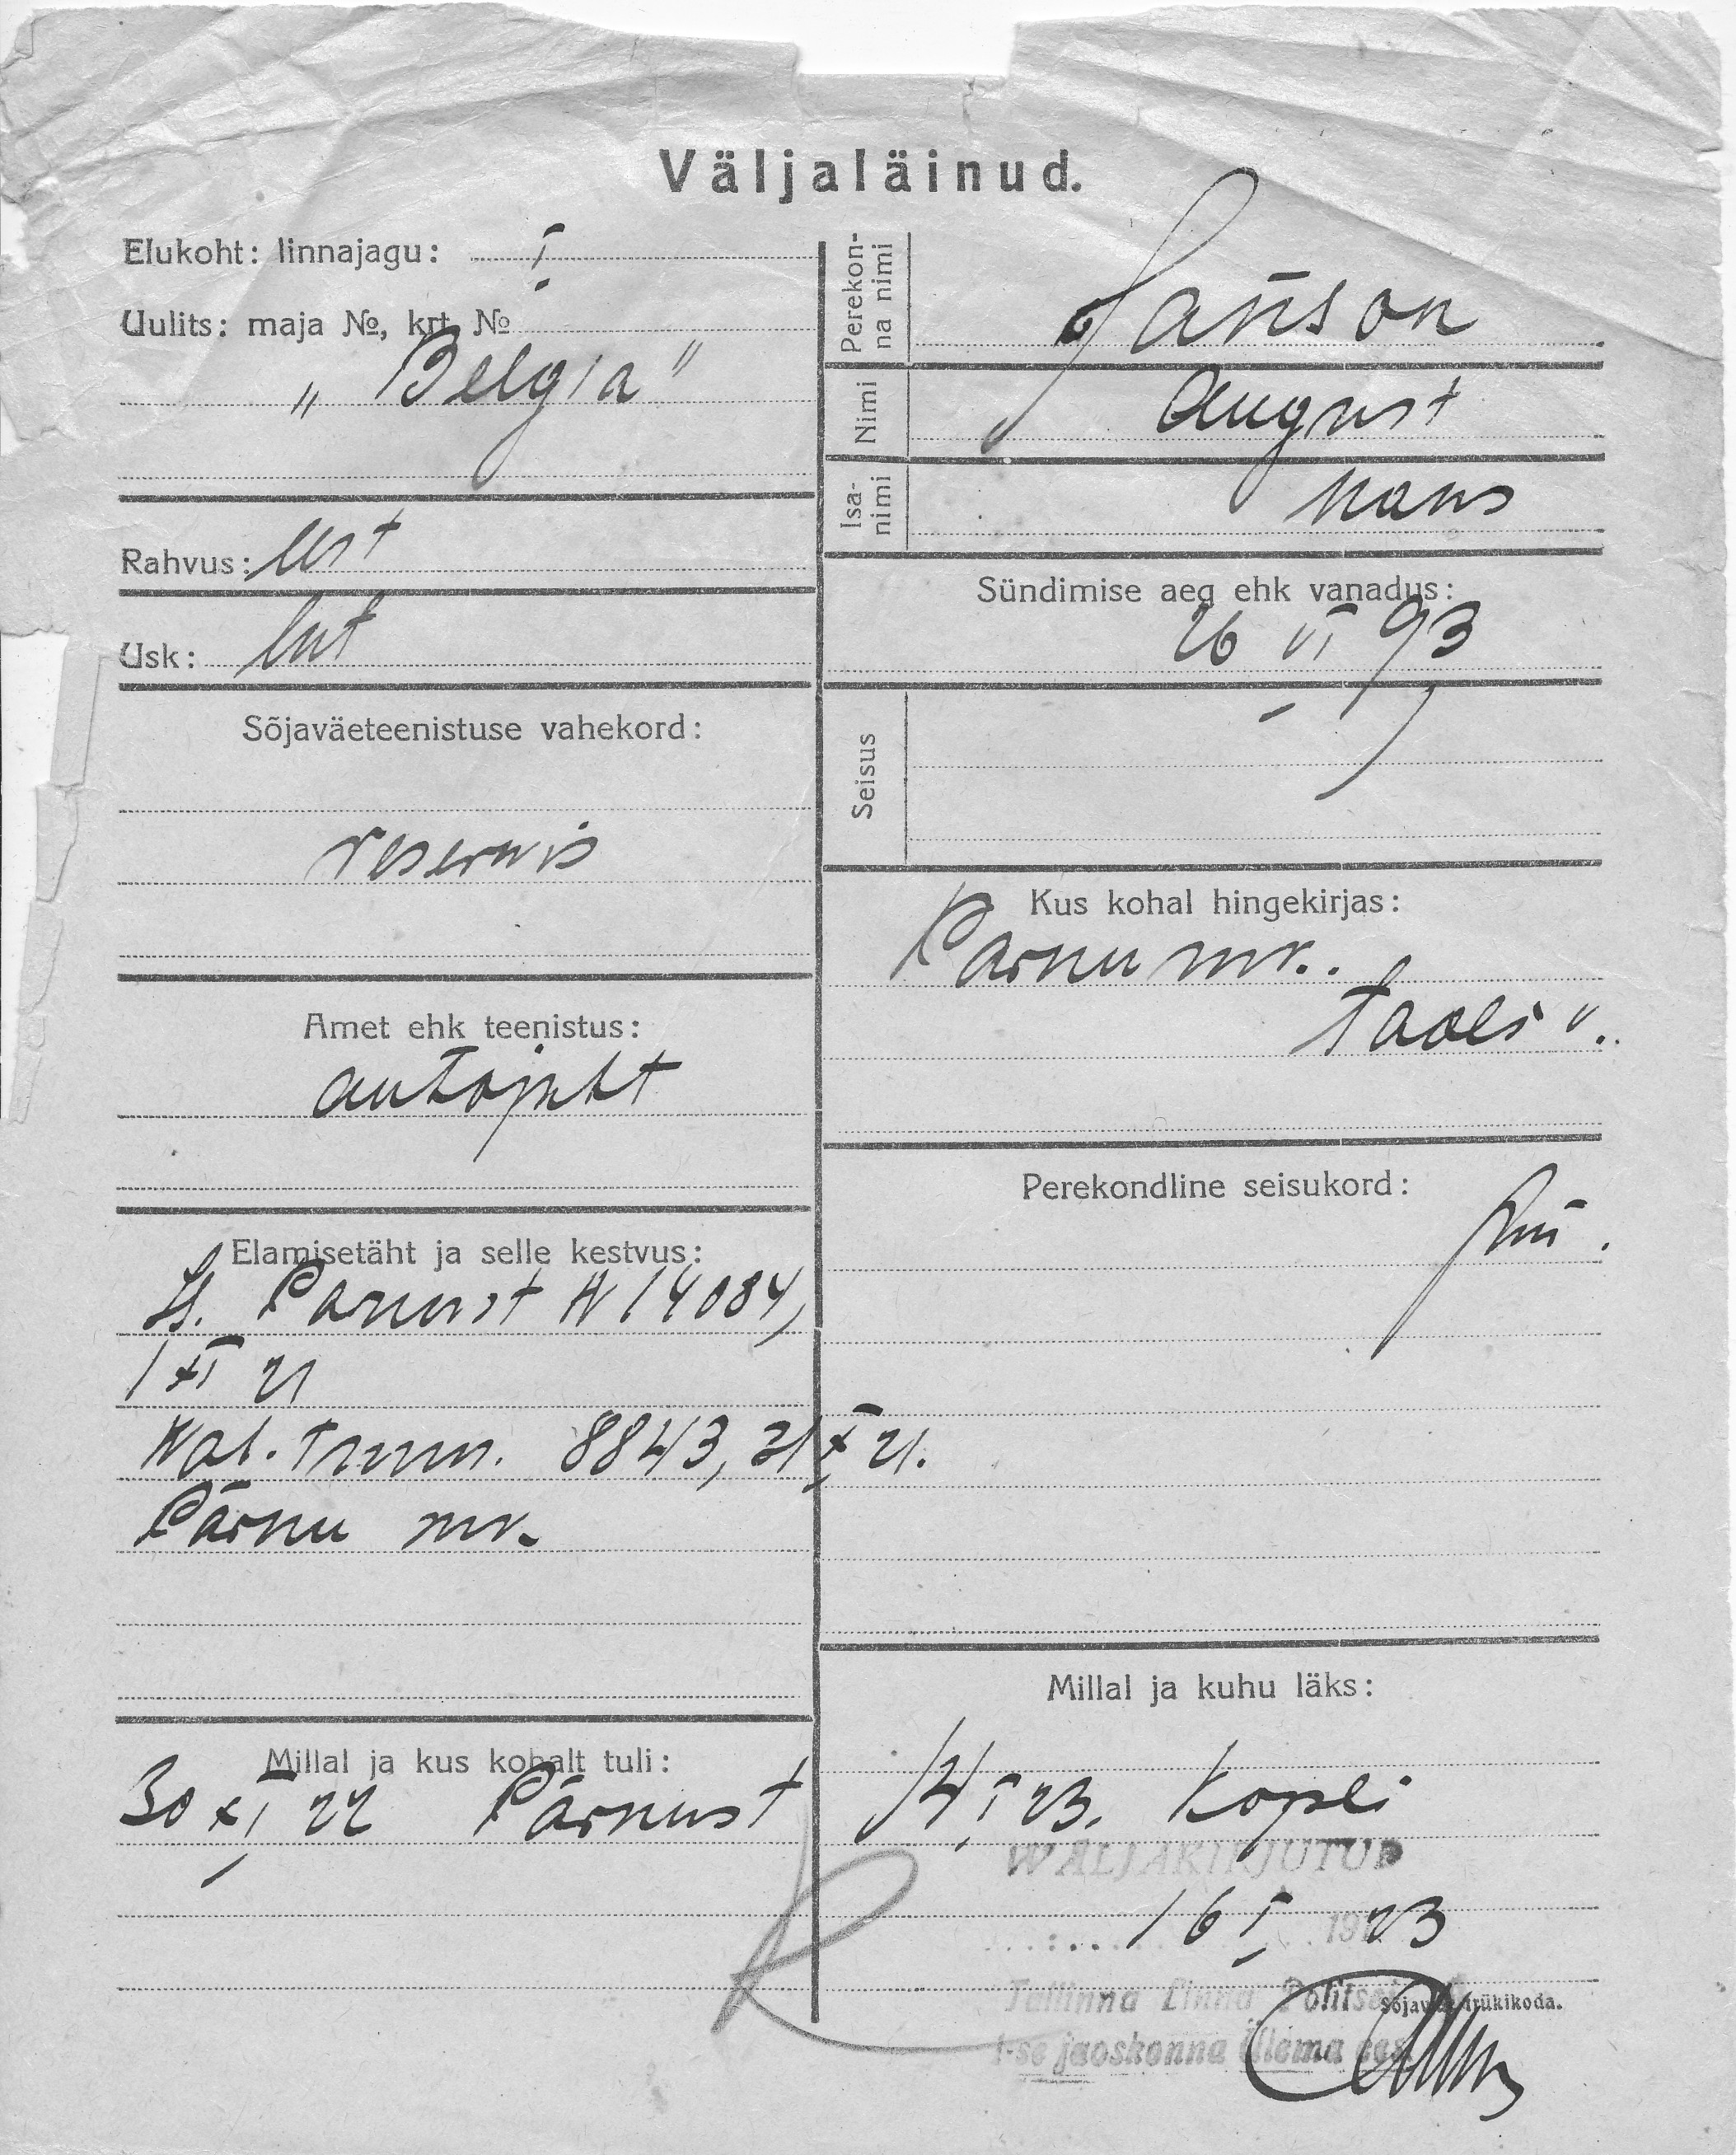 Väljaläinud.
Elukoht: linnajagu: I
Uulits: maja №, krt. №
„ Belgia "
Rahvus: est
Usk: lut
Sõjaväeteenistuse vahekord:
reservis
Amet ehk teenistus:
autojuht
Elamisetäht ja selle kestvus:
Is. Pärnust N 14084,
1 XI 21
Wal. tunn. 8843, 31 X 21.
Pärnu mv.
Millal ja kus kohalt tuli:
30 XI 22 Pärnust
Perekonna nimi
Janson
Nimi
August
Isanimi
Hans
Sündimise aeg ehk vanadus:
26 VI 93
Seisus
Kus kohal hingekirjas:
Pärnu mv..
Taali v.
Perekondline seisukord:
Millal ja kuhu läks:
14 I 23. Kopli
WÄLJAKIRJUTUD
16 I 1923
Tallinna Linna Politsei
Sõjaväe trükikoda.
I-se jaoskonna Ülema eest